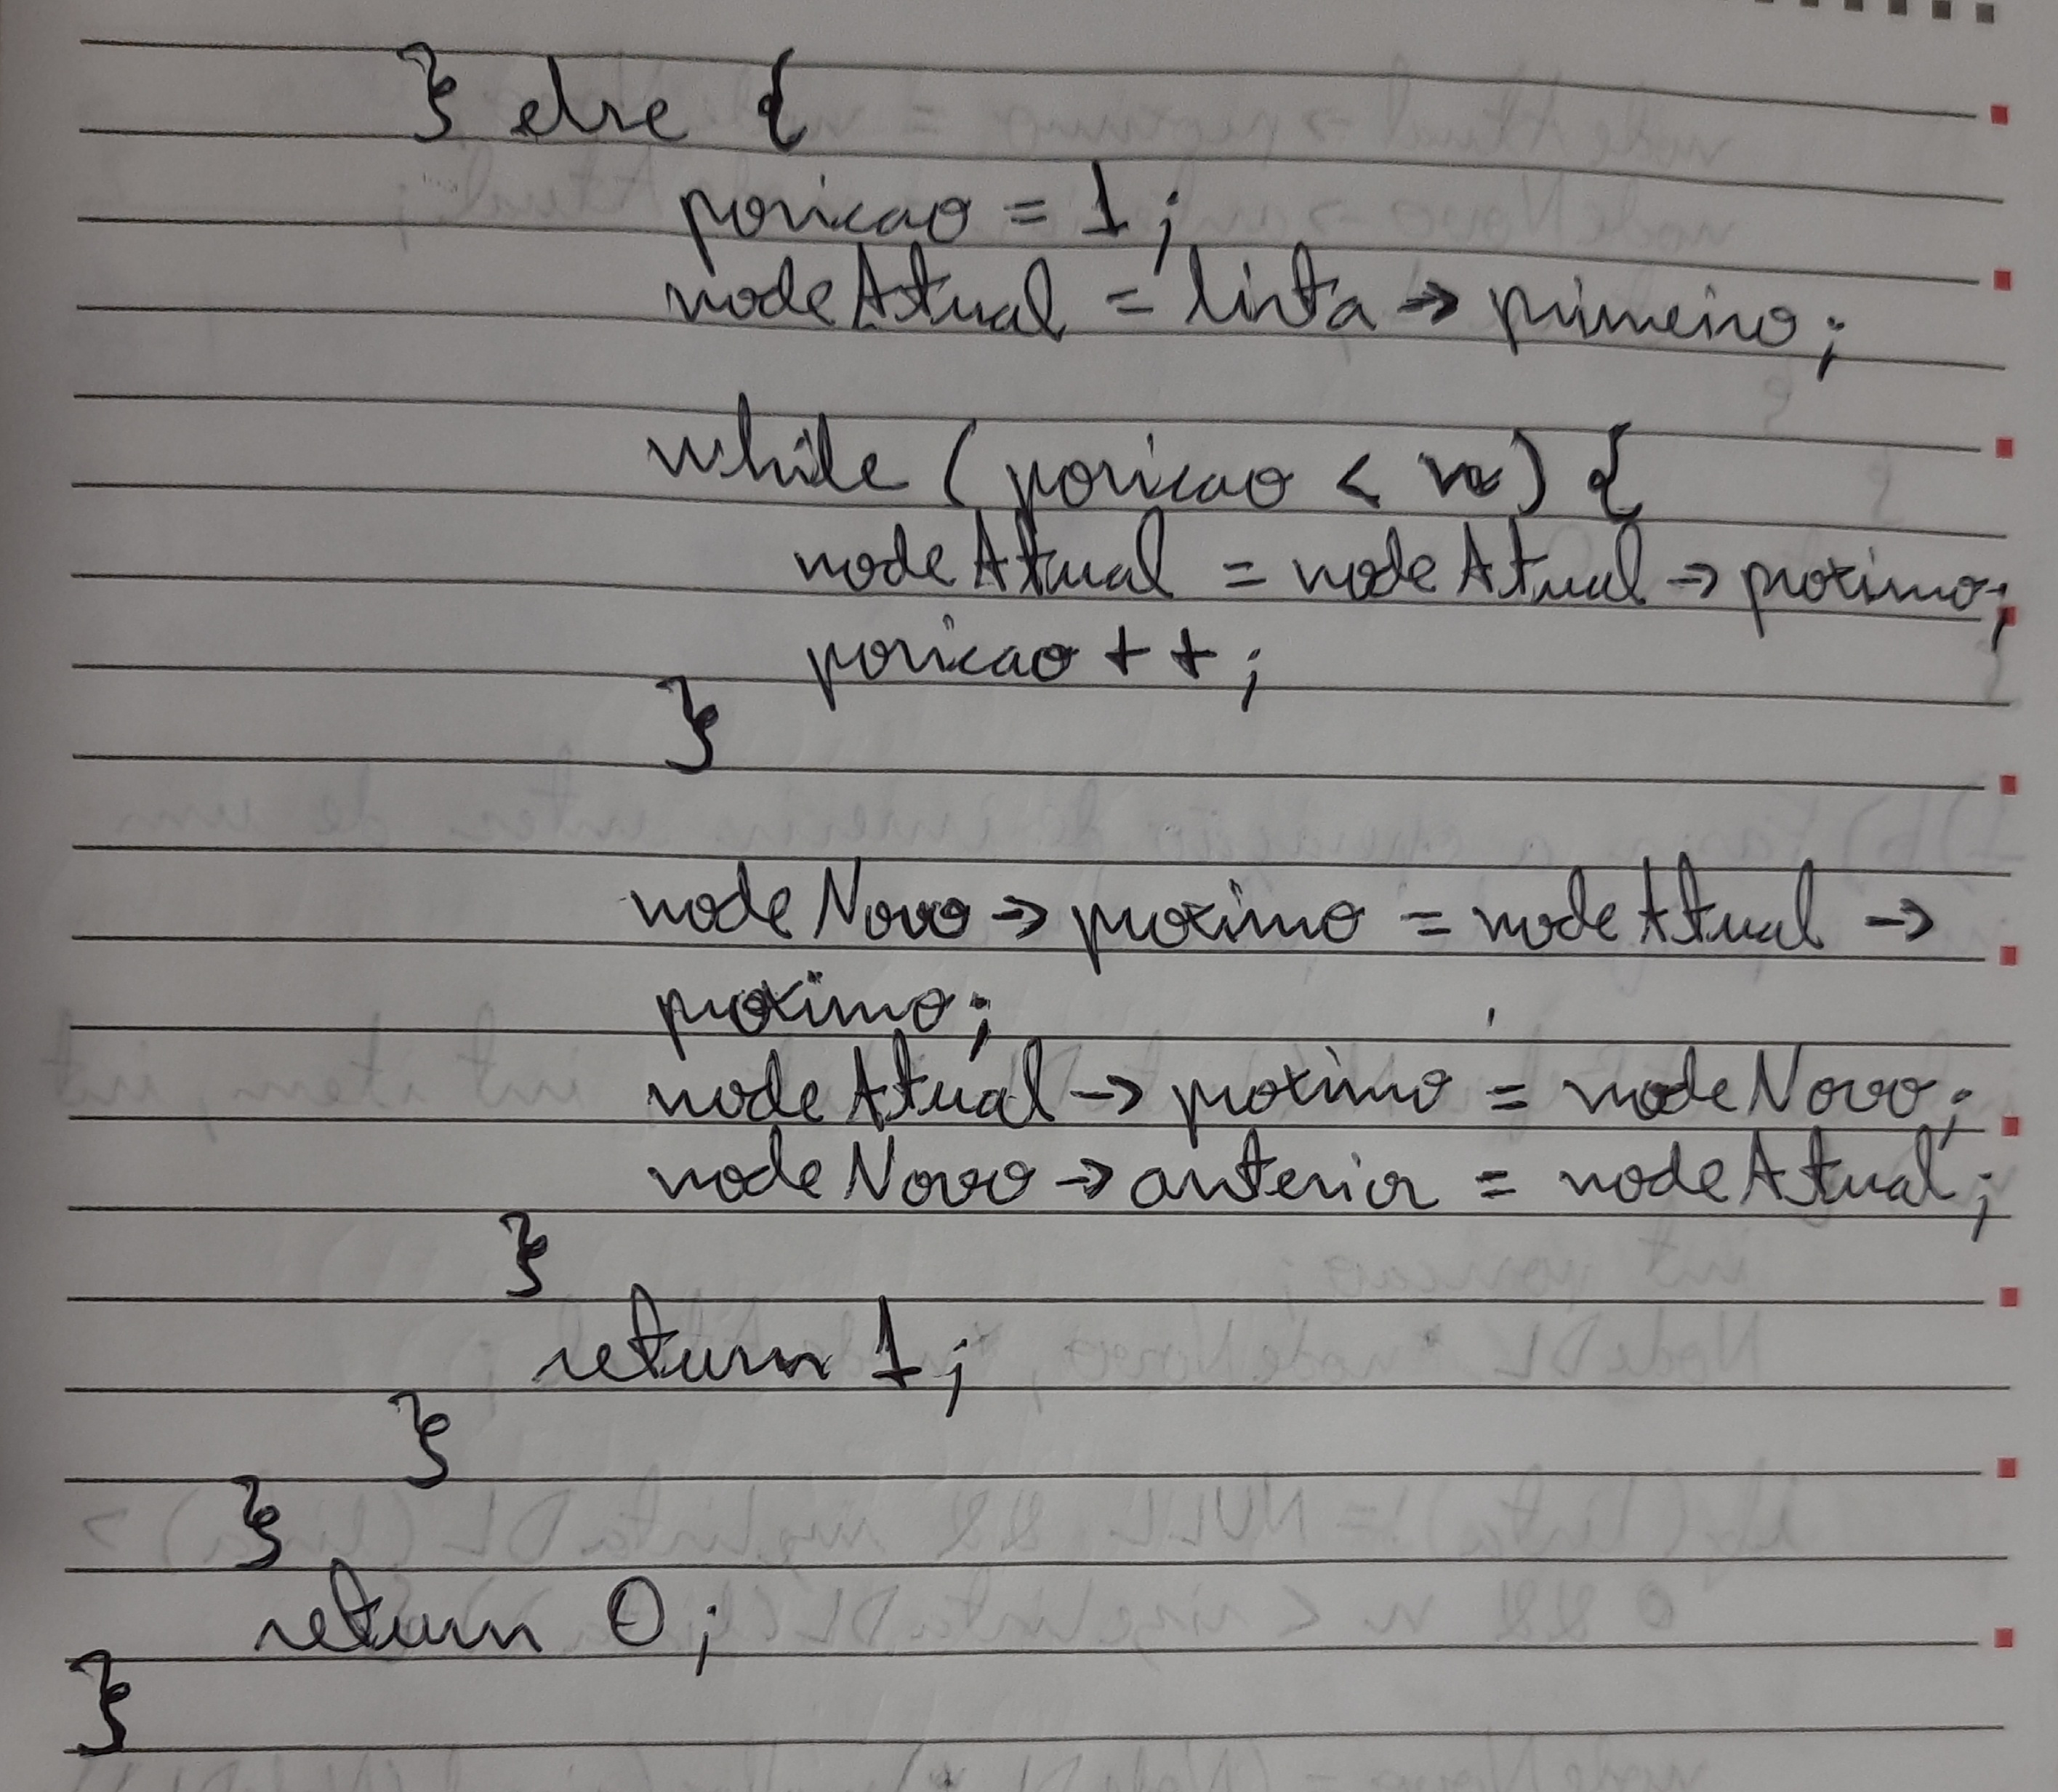 } else {
posicao = 1;
nodeAtual = lista -> primeiro;
while (posicao < n) {
nodeAtual = nodeAtual -> proximo;
posicao ++;
}
nodeNovo -> proximo = nodeAtual ->
proximo;
nodeAtual -> proximo = nodeNovo;
nodeNovo -> anterior = nodeAtual;
}
return 1;
}
}
return 0;
}